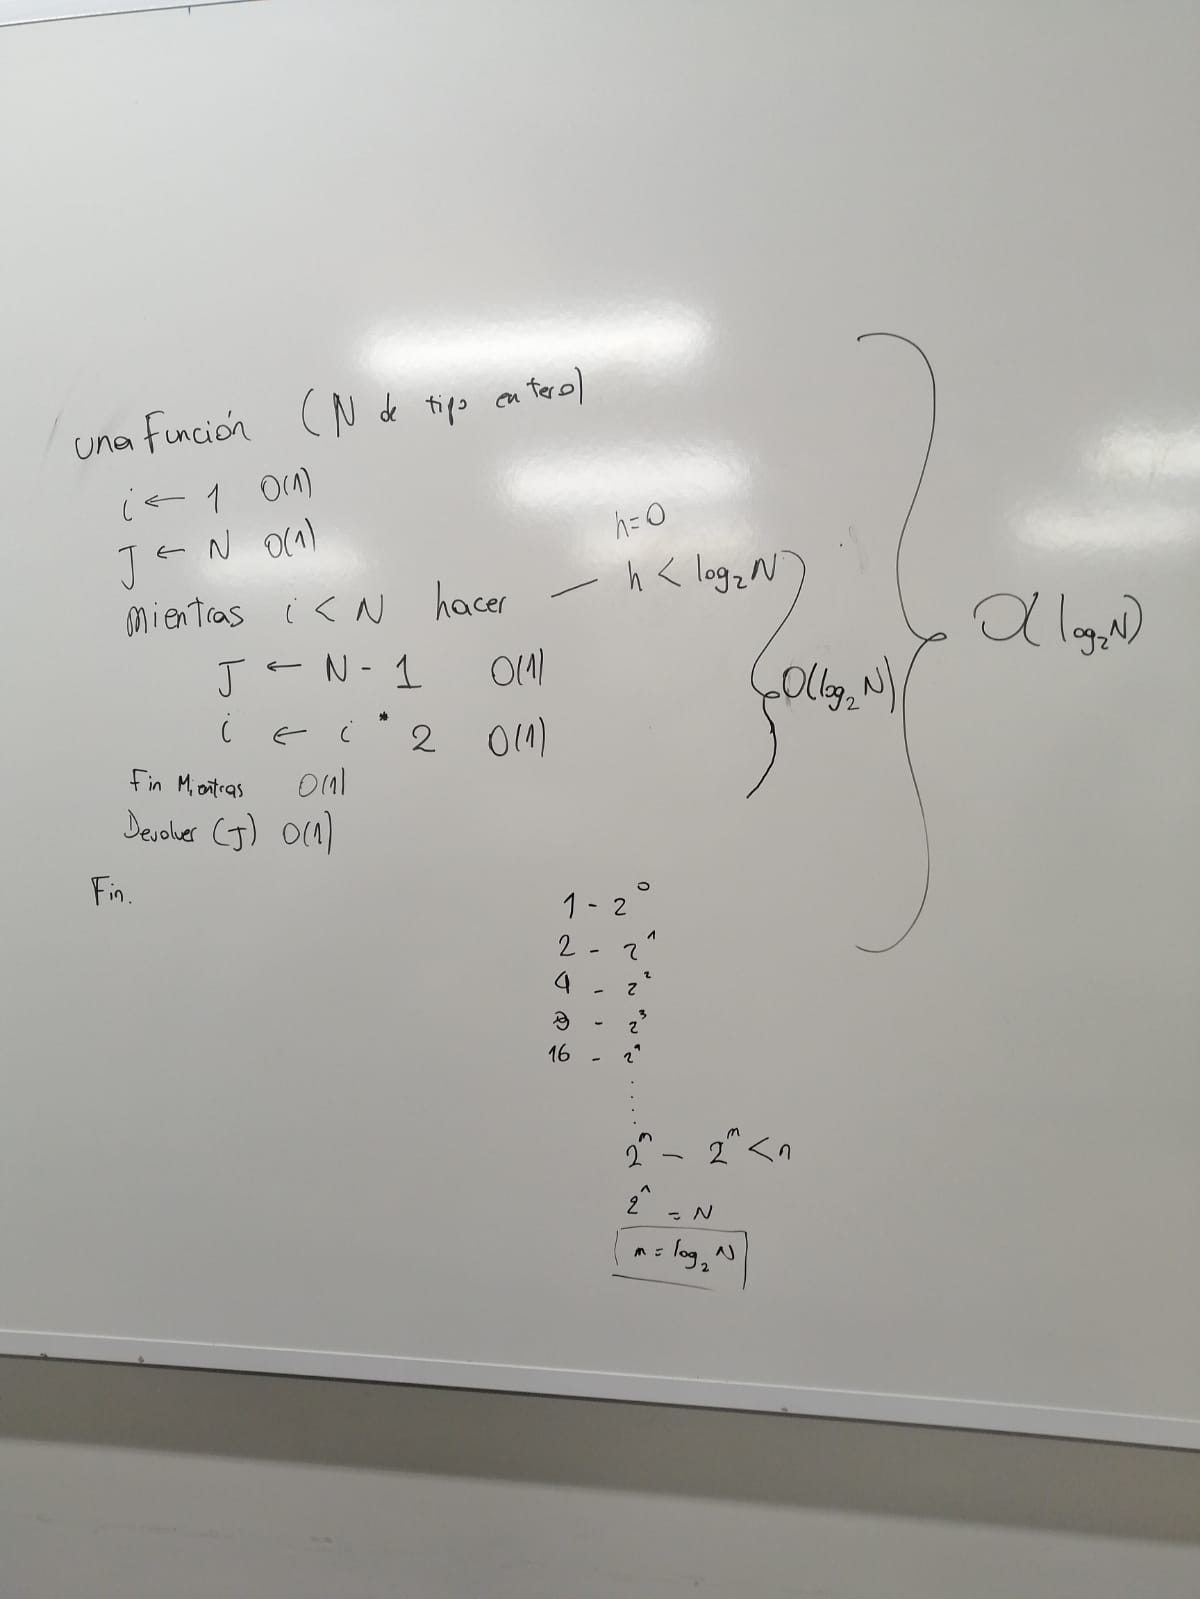 una Función (N de tipo entero)
i ← 1 O(1)
J ← N O(1)
h=0
mientras i < N hacer — h < log₂N
J ← N - 1 O(1)
i ← i * 2 O(1)
O(log₂ N)
O(log₂N)
Fin Mientras O(1)
Devolver (J) O(1)
Fin.
1 - 2⁰
2 - 2¹
4 - 2²
8 - 2³
16 - 2⁴
.....
2ᵐ - 2ᵐ < n
2^ = N
m = log₂ N